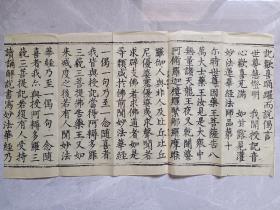 記歡喜踊躍而說偈言
世尊慧燈明 我聞授記音
心歡喜充滿 如甘露見灌
妙法蓮華經法師品第十
尒時世尊因藥王菩薩告八
萬大士藥王汝見是大眾中
無量諸天龍王夜叉乾闥婆
阿脩羅迦樓羅緊那羅摩睺
羅伽人與非人及比丘比丘
尼優婆塞優婆夷求聲聞者
求辟支佛者求佛道者如是
等類咸於佛前聞妙法華經
一偈一句乃至一念隨喜者
我皆與授記當得阿耨多羅
三藐三菩提佛告藥王又如
來滅度之後若有人聞妙法
華經乃至一偈一句一念隨
喜者我亦與授阿耨多羅三
藐三菩提記若復有人受持
讀誦解說書寫妙法華經乃